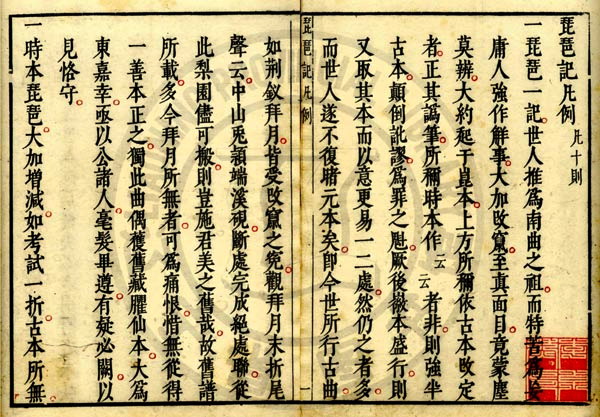 琵琶記凡例 凡十則
一琵琶一記世人推爲南曲之祖而特苦爲妄
庸人強作解事大加改竄至真面目竟蒙塵
莫辨大約起于崑本上方所稱依古本改定
者正其譌筆所稱時本作云云者非則強半
古本顛倒訛謬爲罪之魁厥後徽本盛行則
又取其本而以意更易一二處然仍之者多
而世人遂不復睹元本矣即今世所行古曲
琵琶記凡例
一
如荊釵拜月皆受改竄之冤觀拜月末折尾
聲云中山兎頴端溪硯斷處完成絕處聯從
此梨園儘可搬則豈施君美之舊哉故舊譜
所載多今拜月所無者可爲痛恨惜無從得
一善本正之獨此曲偶獲舊藏臞仙本大爲
東嘉幸亟以公諸人毫髮畢遵有疑必闕以
見恪守
一時本琵琶大加增減如考試一折古本所無